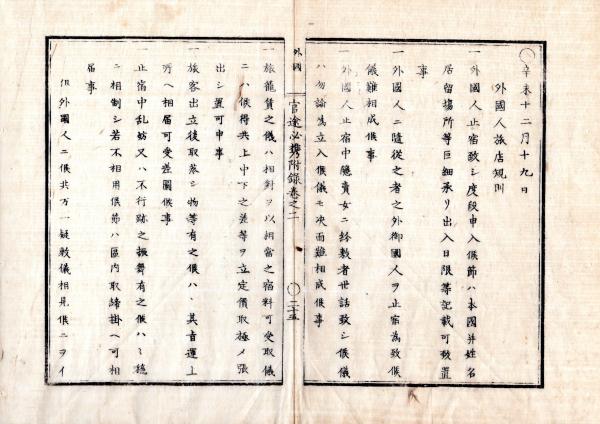 〇辛未十二月十九日
外國人旅店規則
一外國人止宿致シ度段申入候節ハ本國并姓名
居留場所等巨細承リ出入日限等記載可致置
事
一外國人ニ隨從之者之外御國人ヲ止宿為致候
儀難相成候事
一外國人止宿中賣女ニ紛敷者世話致シ候儀
ハ勿論為立入候儀モ決而難相成候事
外國
官途必携附録巻之二
〇二十五
一旅籠賃之儀ハ相對ヲ以相當之宿料可受取儀
ニハ候得共上中下之差等ヲ立定價取極メ張
出シ置可申事
一旅客出立後取落シ物等有之候ハヽ其旨運上
所ヘ相届可受差圖候事
一止宿中乱妨又ハ不行跡之振舞有之候ハヽ穏
ニ相制シ若不相用候節ハ區内取締掛ヘ可相
届事
但外國人ニ候共万一疑敷儀相見候ニヲイ